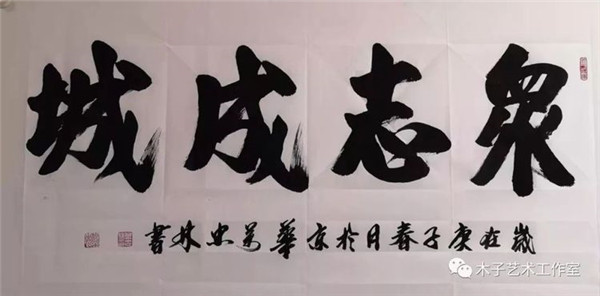 眾志成城
歲在庚子春月於京華万忠林書
木子艺术工作室